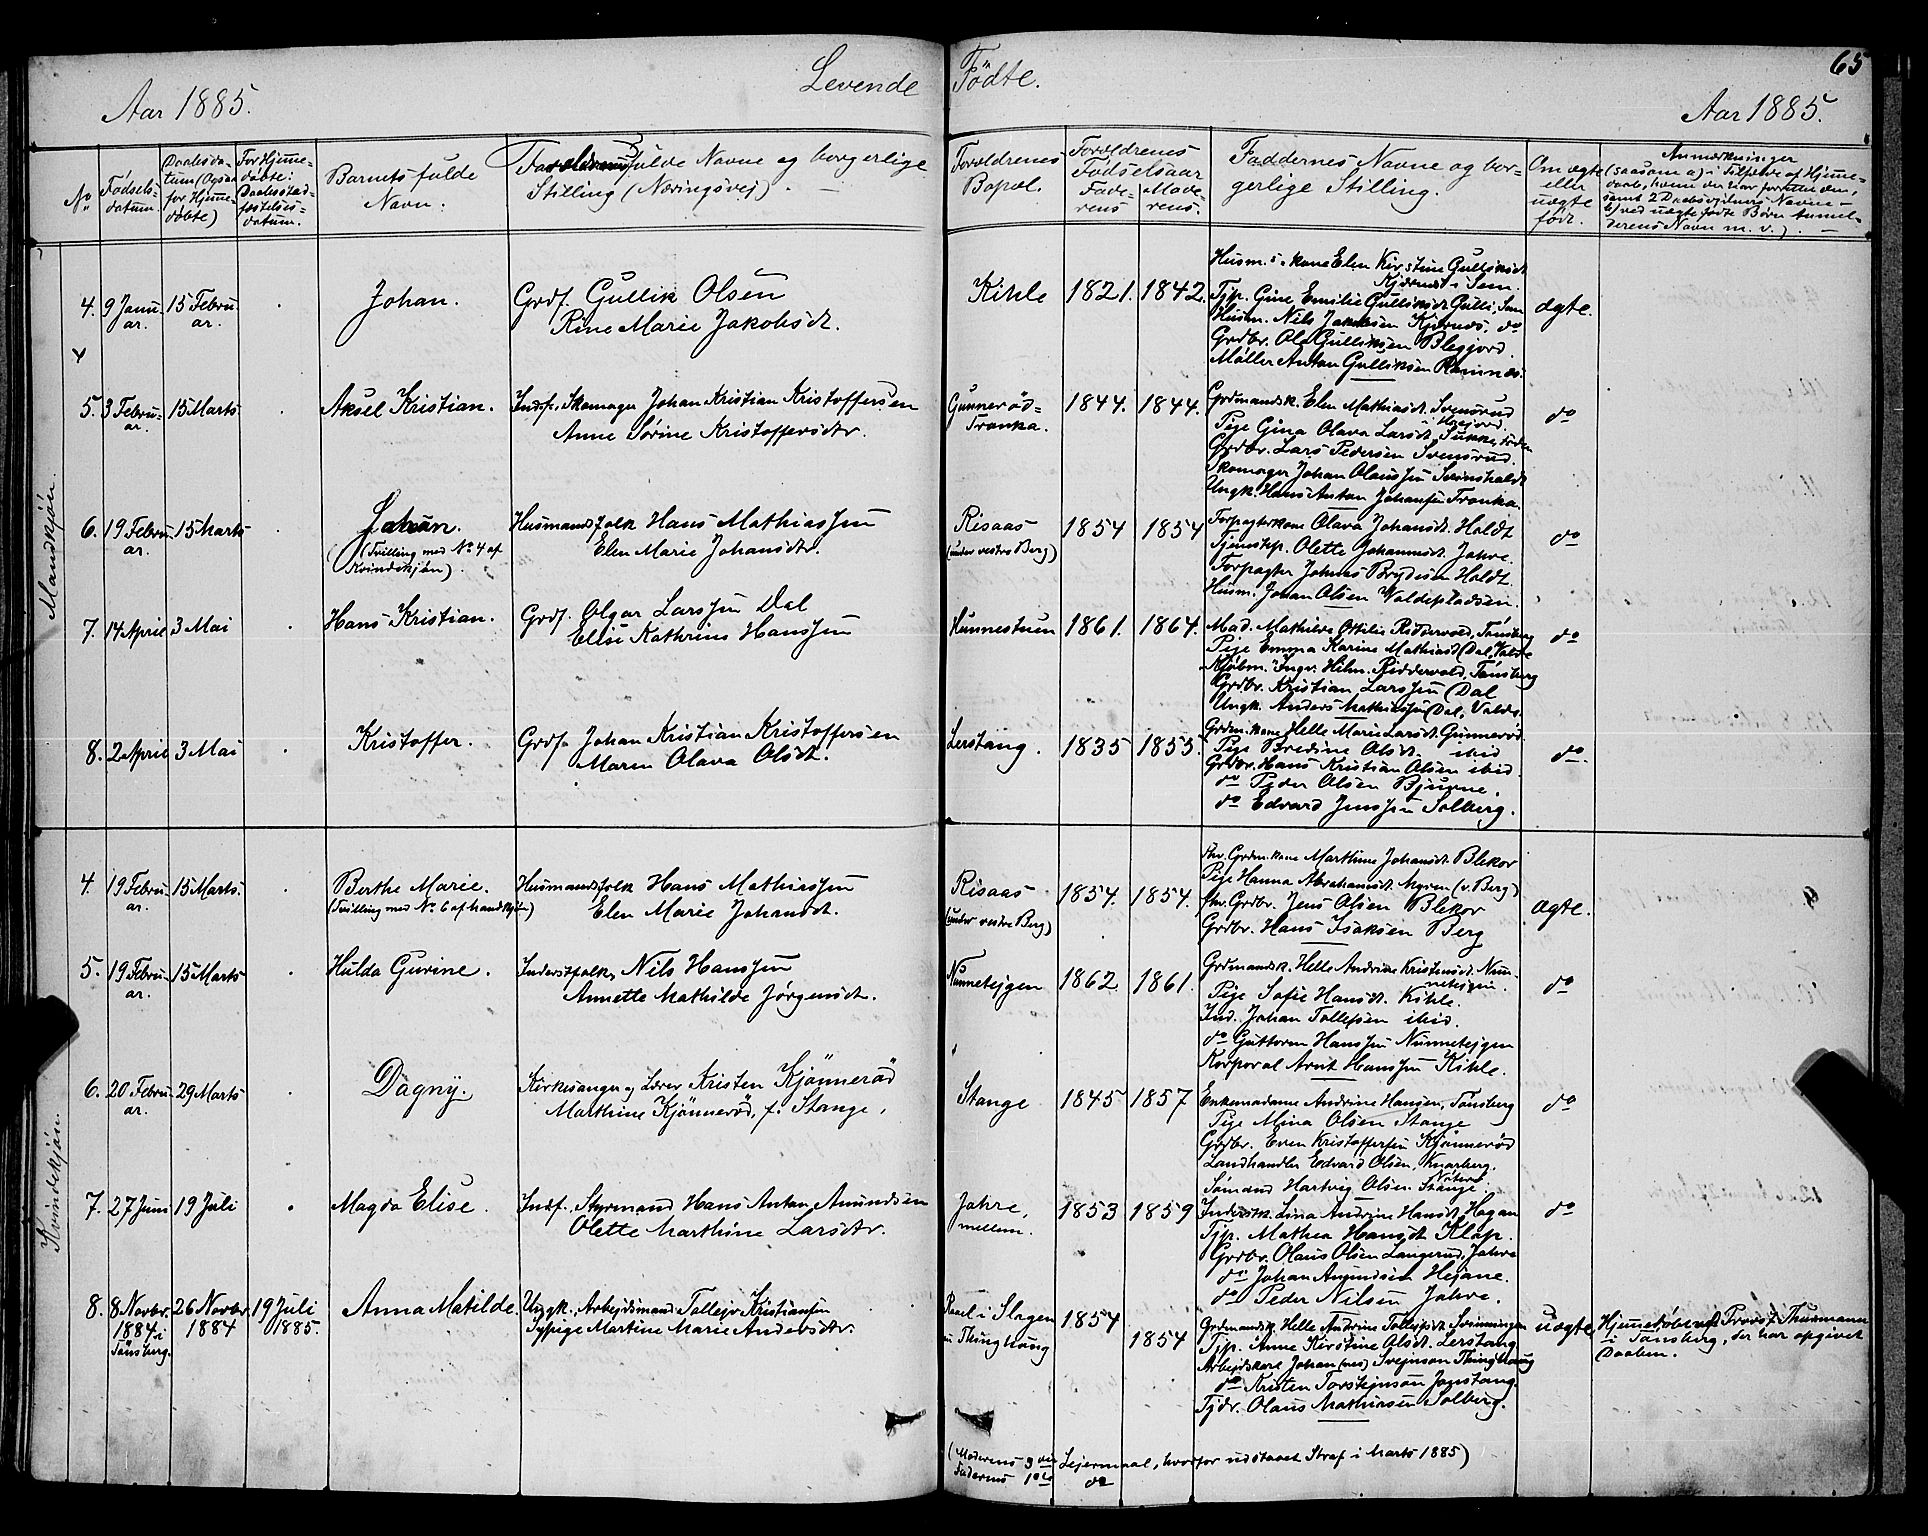 Levende Födte.
65
Aar 1885.
Aar 1885.
No
Födsels-
datum.
Daabsda-
tum (Ogsaa
for Hjemme-
døbte)
For Hjemme-
døbte:
Daabsstad-
fæstelses-
datum.
Barnets fulde
Navn.
Forældrenes fulde Navne og borgerlige
Stilling (Næringsvej).
Forældrenes
Bopæl.
Forældrenes
Födselsaar
Fade- Mode-
rens rens.
Faddernes Navne og bor-
gerlige Stilling.
Om ægte
eller
uægte
født.
Anmærkninger
(saasom a) i Tilfælde af Hjemme-
daab, hvem der har forrettet den,
samt 2 Daabsvidners Navne -
b) ved uægte fødte Børn Anmel-
derens Navn m. v.). -
Mandkjön.
4. 9 Janu-
ar.
15 Febru-
ar.
Johan.
Grdf. Gullik Olsen
Rine Marie Jakobsdt.
Kihle
1821. 1842.
Husm.s kone Elen Kirstine Gulliksdt
i Sem.
Tjp. Gine Emilie Gulliksdt Gulli, Sem
Husm. Nils Jakobsen Kjærnæs, do
Grdbr. Ole Gulliksen Blegjord.
Møller Anton Gulliksen Ramnæs.
ægte.
5. 3 Febru-
ar.
15 Marts
Aksel Kristian.
Indf. Skomager Johan Kristian Kristoffersen
Anne Sörine Kristoffersdtr.
Gunneröd-
Tronka.
1844. 1844.
Grdmandsk. Elen Mathiasdt. Svensrud
Pige Gina Olava Larsdt. Sukke,
Grdbr. Lars Pedersen Svensrud.
Skomager Johan Olaussen
Ungk. Hans Anton Johansen Tronka.
do
6. 19 Febru-
ar.
15 Marts
Johan.
(Tvilling med No 4 af
Kvindekjön).
Husmandsfolk Hans Mathiassen
Elen Marie Johansdtr.
Risaas
(under vestre Berg)
1854 1854
Forpagterkone Olava Johansdt. Holdt
Tjenstep. Olette Johannesdt. Jahre.
Forpagter Johnes Brydesen Holdt.
Husm. Johan Olsen Valdepladsen.
do
7. 14 April 3 Mai
Hans Kristian.
Grdf. Olgar Larssen Dal
Elise Kathrine Hanssen
Hunnestuen
1861. 1864.
Mad. Mathilde Ottilie Riddervold, Tönsberg
Pige Emma Karine Mathiasdt Dal, Valde
Kjöbm. Ingv. Hilm. Riddervold, Tönsberg
Grdbr. Kristian Larssen Dal
Ungk. Anders Mathiassen Dal, Valde.
do
8. 2 April 3 Mai
Kristoffer.
Grdf. Johan Kristian Kristoffersen
Maren Olava Olsdt.
Lerstang.
1835 1853.
Grdm.kone Helle Marie Larsdt. Gunneröd.
Pige Bredine Olsdt. ibid
Grdbr. Hans Kristian Olsen ibid.
do Peder Olsen Bjuerne.
do Edvard Jenssen Solberg.
do.
Kvindekjön.
4. 19 Febru-
ar.
15 Marts.
Berthe Marie.
(Tvilling med No 6 af Mandkjön)
Husmandsfolk Hans Mathiassen
Elen Marie Johansdt.
Risaas
(under vestre Berg)
1854. 1854.
fhv. Grdm.kone Marthine Johansdt Blekor
Pige Hanna Abrahamsdt. Myren (v. Berg)
fhv. Grdbr. Jens Olsen Blekor
Grdbr. Hans Isaksen Berg
ægte.
5. 19 Febru-
ar.
15 Marts
Hulda Gurine.
Inderstfolk, Nils Hanssen
Annette Mathilde Jörgensdt.
Nunnetejgen
1862 1861.
Grdmandsk. Helle Andrine Kristensdt. Nun-
netejgen.
Pige Sofie Hansdt. Kihle.
Ind. Johan Tollefsen ibid.
do Guttorm Hanssen Nunnetejgen
Korporal Arnt Hanssen Kihle.
do
6. 20 Febru-
ar.
29 Marts
Dagny.
Kirkesanger og Lærer Kristen Kjönneröd
Marthine Kjönneröd, f. Stange.
Stange
1845 1857
Enkemadame Andrine Hansen, Tönsberg
Pige Mina Olsen Stange
Grdbr. Even Kristoffersen Kjönneröd
Landhandler Edvard Olsen, Knarberg,
Nöterö.
Sömand Hartvig Olsen Stange.
do
7. 27 Juni 19 Juli
Magda Elise.
Indf. Styrmand Hans Anton Amundsen
Olette Marthine Larsdtr.
Jahre,
mellem.
1853 1859
Inderstk. Lina Andrine Hansdt. Hagan
Tjp. Mathea Hansdt Klop.
Grdbr. Olaus Olsen Langerud, Jahre
do Johan Amundsen Hejane.
do Peder Nilsen Jahre.
do
8. 8 Novbr.
1884 i
Tönsberg.
26 Novbr.
1884
19 Juli
1885.
Anna Matilde.
Ungk. Arbejdsmand Tollejv Kristiansen
Sypige Martine Marie Andersdtr.
Rael i Slagen
u Thinghaug
1854
1854
Grdmandsk. Helle Andrine Tollefsdt
Tjp. Anne Kirstine Olsdt. Lerstang
Arbejdskarl Johan(nes) Svejnson Thinghaug
do Kristen Torstejnson Jonstang.
Tjdr. Olaus Mathiasen Solberg.
uægte
Hjemmedøbt Provst Thurmann
i Tønsberg, der har opgivet
Daaben.
(Moderens 3die Lejermaal, hvorfor udstaaet Straf i Marts 1885)
Faderens 1ste do